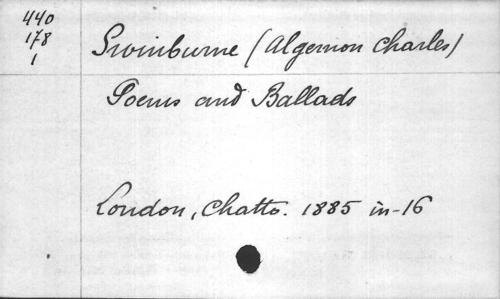 440
178
1
Swinburne (Algernon Charles)
Poems and Ballads
London, Chatto. 1885 in-16